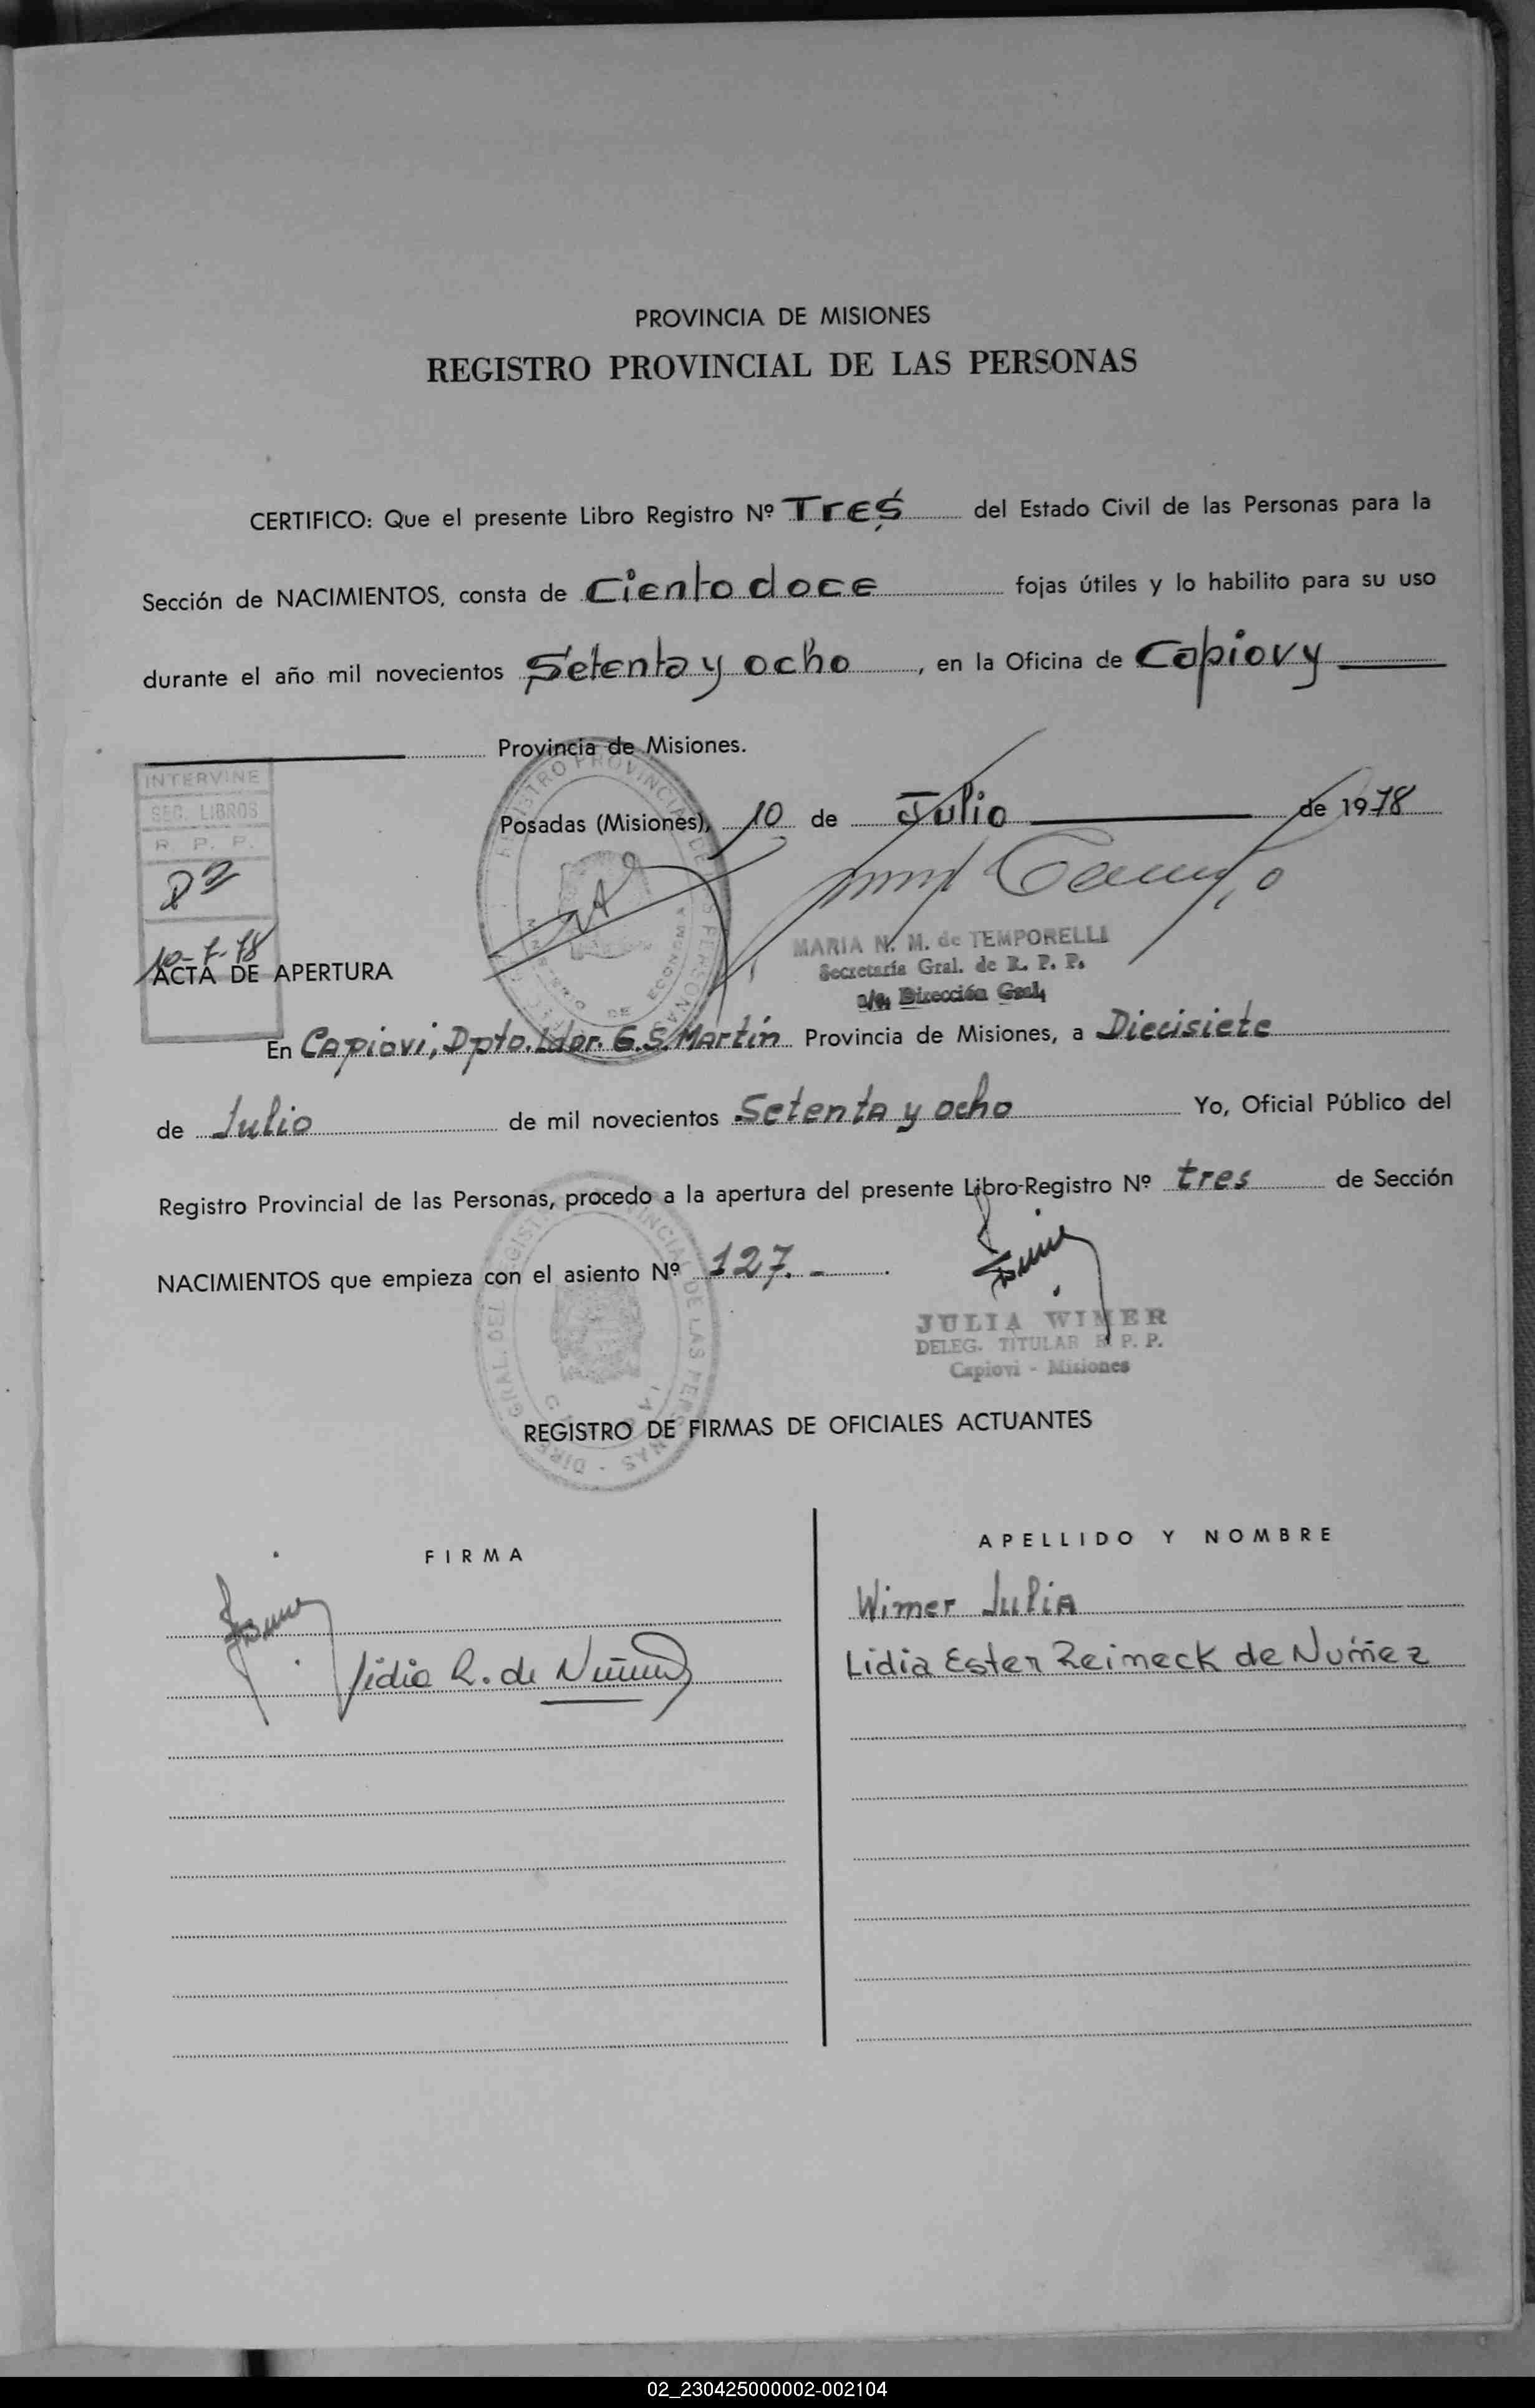 PROVINCIA DE MISIONES
REGISTRO PROVINCIAL DE LAS PERSONAS
CERTIFICO: Que el presente Libro Registro Nº Tres del Estado Civil de las Personas para la
Sección de NACIMIENTOS, consta de Ciento doce fojas útiles y lo habilito para su uso
durante el año mil novecientos Setenta y ocho, en la Oficina de Capiovy
Provincia de Misiones.
INTERVINE
SEC. LIBROS
R. P. P.
10-7-78
Posadas (Misiones), 10 de Julio de 1978
MARIA N. M. de TEMPORELLI
Secretaría Gral. de R. P. P.
a/c. Dirección Gral.
ACTA DE APERTURA
En Capiovi, Dpto. Ldor. G. S. Martín Provincia de Misiones, a Diecisiete
de Julio de mil novecientos Setenta y ocho Yo, Oficial Público del
Registro Provincial de las Personas, procedo a la apertura del presente Libro-Registro Nº tres de Sección
NACIMIENTOS que empieza con el asiento Nº 127. -
JULIA WIMER
DELEG. TITULAR R. P. P.
Capiovi - Misiones
REGISTRO DE FIRMAS DE OFICIALES ACTUANTES
FIRMA APELLIDO Y NOMBRE
Wimer Julia
Lidia R. de Núñez Lidia Ester Reimeck de Nuñez
02_230425000002-002104